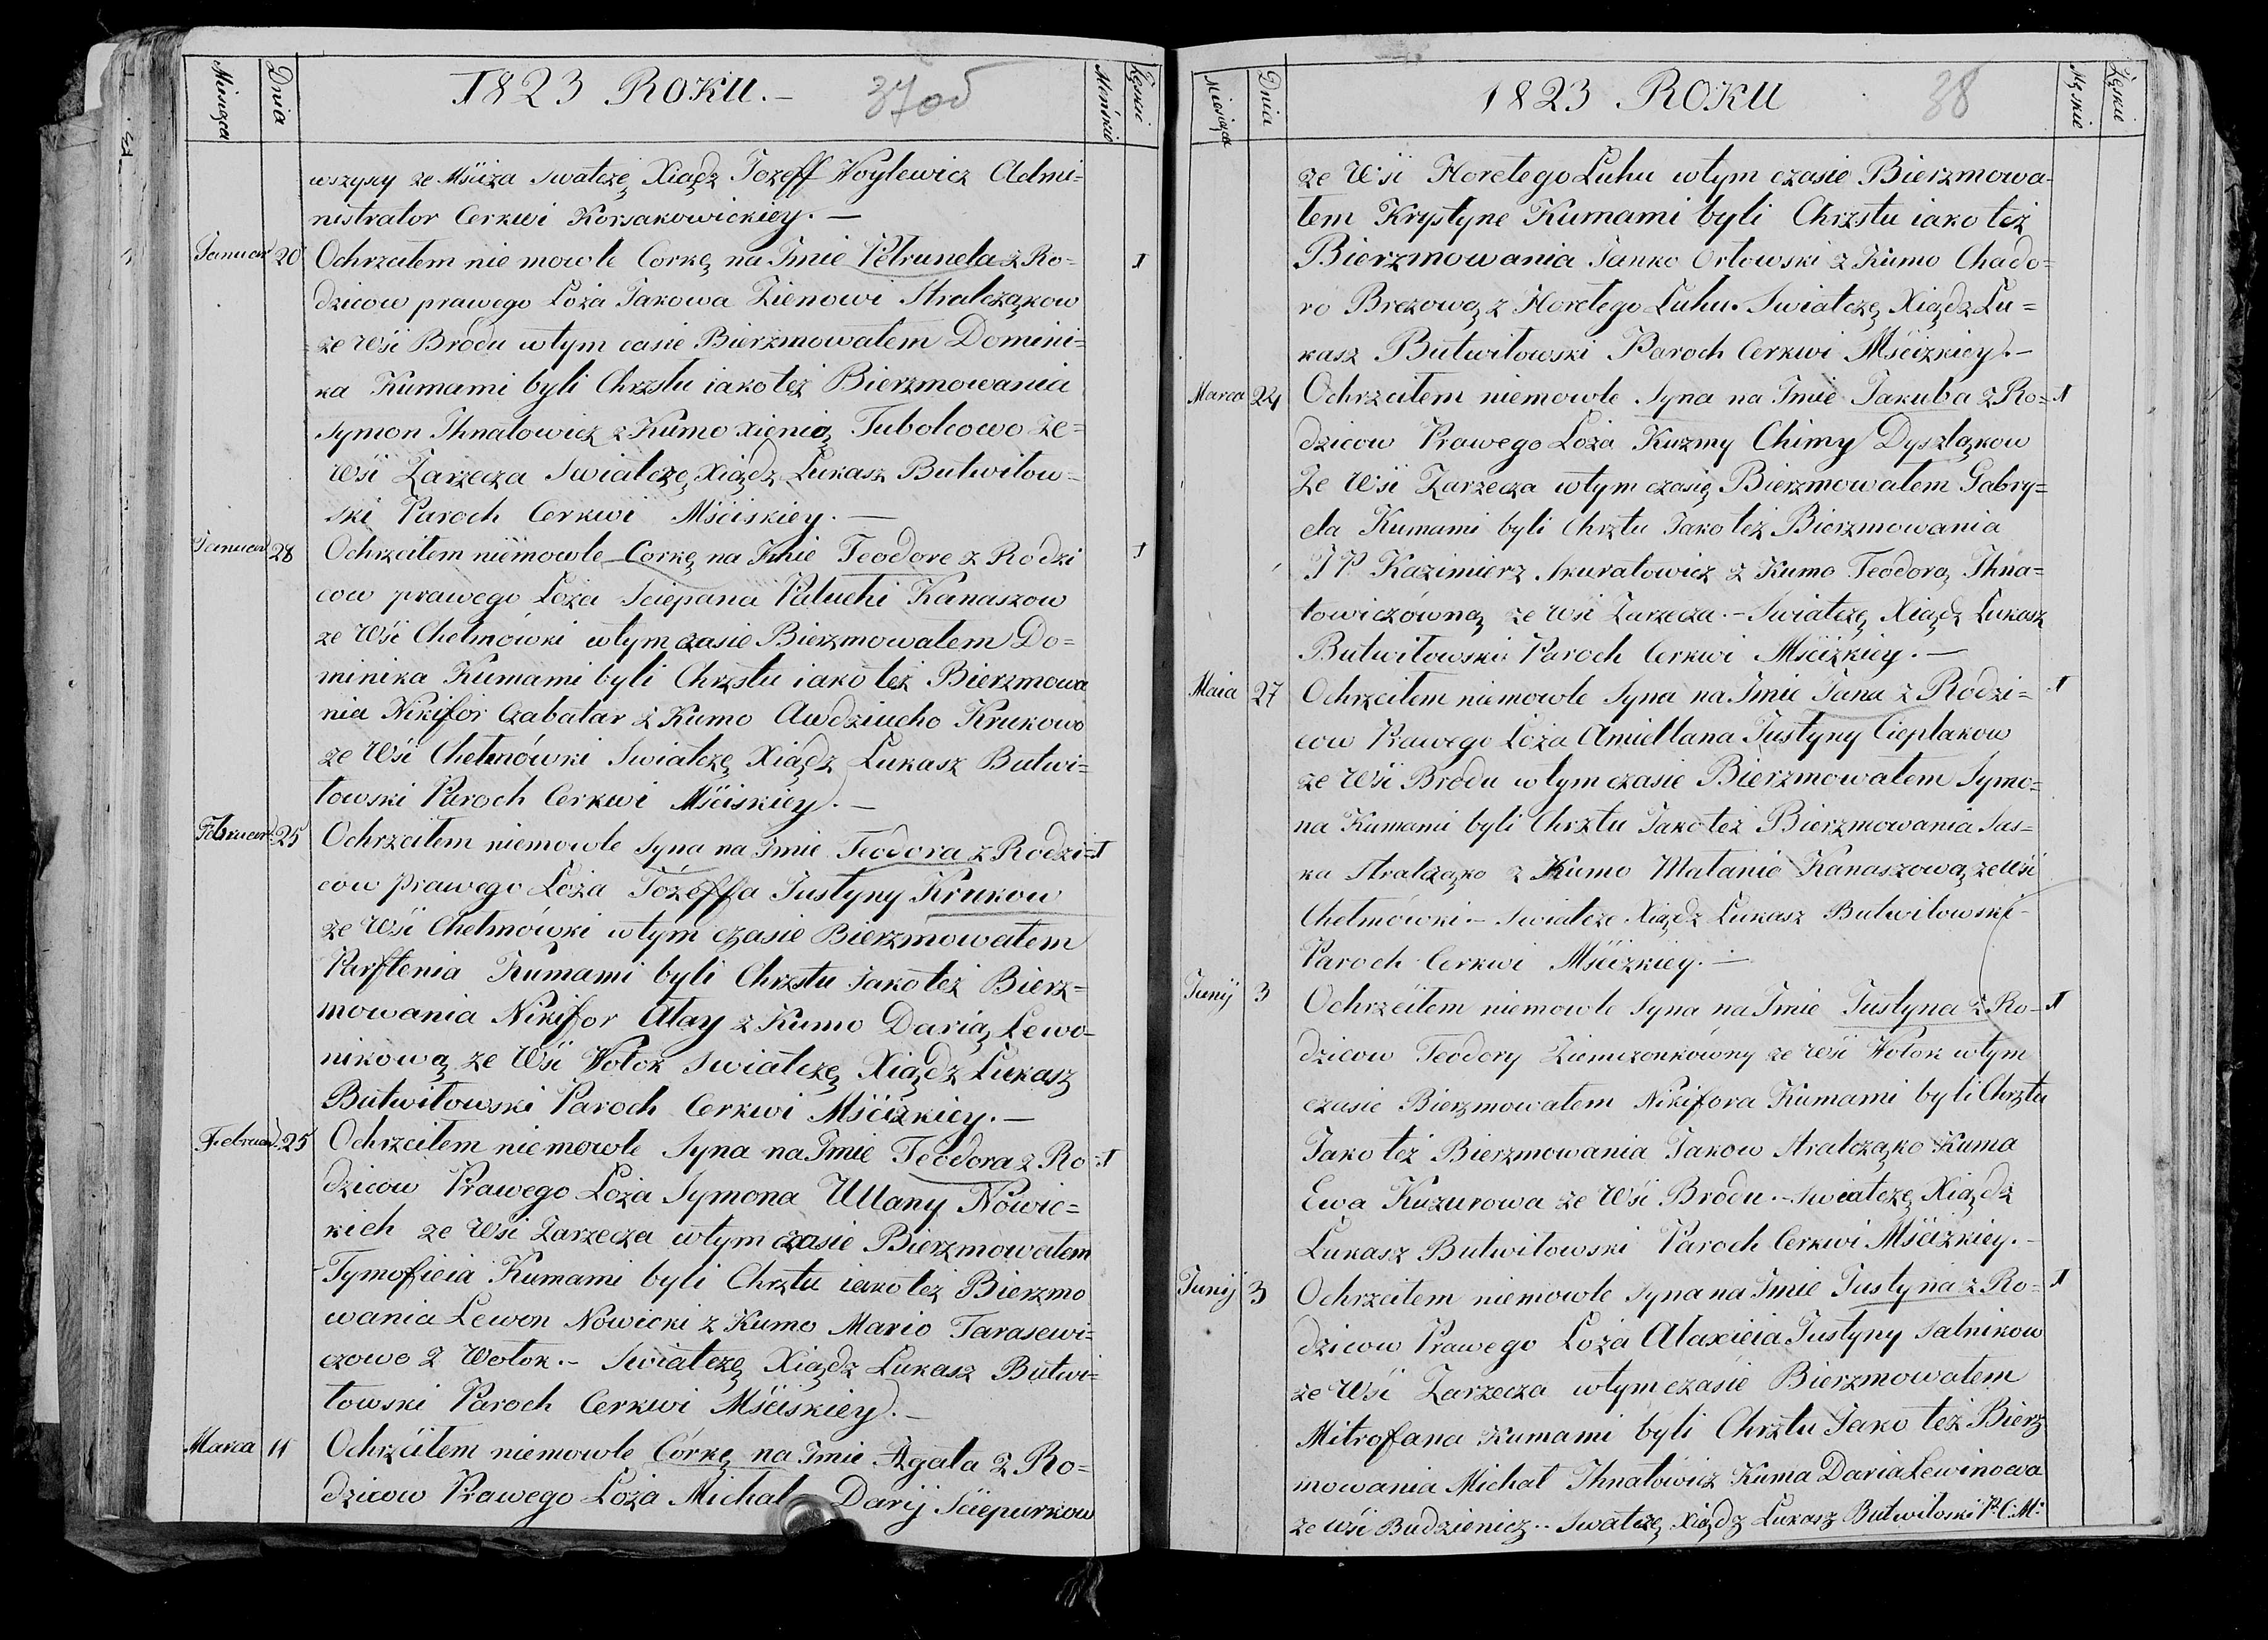 Miesiąca
Dnia
1823 ROKU.–
37об
Męskie
Żęskie
wszyscy ze Mściża Swatczę Xiądz Jozeff Woylewicz Admi-
nistrator Cerkwi Korsakowickiey. —
Januar 20 Ochrzciłem nie mowle Corkę na Jmie Petrunela z Ro= 1
dzicow prawego Łoża Jakowa Zienowi Stralcząkow
ze Wśi Brodu wtym casie Bierzmowałem Domini=
ka Kumami byli Chrzstu iako też Bierzmowania
Symon Ihnatowicz z Kumo Xienią Tubolcowo ze=
Wśi Zarzecza Swiatczę Xiądz Łukasz Butwiłow-
ski Paroch Cerkwi Mśćiskiey. —
Januar 28 Ochrzciłem niemowle Corkę na Jmie Teodore z Rodzi 1
cow prawego Łoża Sciepana Paluchi Kanaszow
ze Wśi Chełmówki wtym czasie Bierzmowałem Do=
minika Kumami byli Chrzstu iako też Bierzmowa
nia Nikifor Czabatar z Kumo Awdziucho Krukowo
ze Wśi Chełmówki Swiatczę Xiądz Łukasz Butwi=
łowski Paroch Cerkwi Mśćiskiey. —
Februar 25 Ochrzciłem niemowle Syna na Jmie Teodora z Rodzi= 1
cow Prawego Łoża Józeffa Justyny Krukow
ze Wśi Chełmówki wtym czasie Bierzmowałem
Parftenia Kumami byli Chrzstu Jako też Bierz=
mowania Nikifor Ałay z Kumo Darią Lewo-
nikową ze Wśi Wołok Swiatczę Xiądz Łukasz
Butwiłowski Paroch Cerkwi Mśćizkiey. —
Februar 25 Ochrzciłem niemowle Syna na Jmie Teodora z Ro- 1
dzicow Prawego Łoża Symona Ullany Nowic=
kich ze Wsi Zarzecza wtym czasie Bierzmowałem
Tymofieia Kumami byli Chrztu iako też Bierzmo
wania Lewon Nowicki z Kumo Mario Tarasewi=
czowo z Wołok.– Swiatczę Xiądz Łukasz Butwi=
łowski Paroch Cerkwi Mśćiskiey. —
Marca 11 Ochrzciłem niemowle Córkę na Jmie Agata z Ro=
dzicow Prawego Łoża Michał Darij Sciepurkow
Miesiąca
Dnia
1823 ROKU
38
Męskie
Żęskie
ze Wśi Horełego Łuhu wtym czasie Bierzmowa-
łem Krystyne Kumami byli Chrzstu iako też
Bierzmowania Janko Orłowski z Kumo Chado=
ro Brezową z Horełego Łuhu. Swiatczę Xiądz Łu=
kasz Butwiłowski Paroch Cerkwi Mśćizkiey. –
Marca 24 Ochrzciłem niemowle Syna na Jmie Jakuba z Ro= 1
dzicow Prawego Łoża Kuzmy Chimy Dyszląkow
Ze Wśi Zarzecza wtym czasię Bierzmowałem Gabry=
ela Kumami byli Chrztu Jako też Bierzmowania
JP. Kazimierz Skuratowicz z Kumo Teodorą Ihna=
towiczówną ze Wśi Zarzecza.– Swiatczę Xiądz Łukasz
Butwiłowski Paroch Cerkwi Mśćizkiey. —
Maia 27 Ochrzciłem niemowle Syna na Jmie Jana z Rodzi= 1
cow Prawego Łoża Amiellana Justyny Cieplakow
ze Wśi Brodu wtym czasie Bierzmowałem Symo=
na Kumami byli Chrztu Jako też Bierzmowania Sas=
ka Stralcząko z Kumo Matanio Kanaszową ze Wśi
Chełmówki.– Swiatcze Xiądz Łukasz Butwiłowski
Paroch Cerkwi Mśćizkiey. —
Junij 3 Ochrzciłem niemowle Syna na Jmie Justyna z Ro- 1
dzicow Teodory Ziemczonkówny ze Wśi Wołok wtym
czasie Bierzmowałem Nikifora Kumami byli Chrztu
Jako też Bierzmowania Jakow Stralcząko Kuma
Ewa Kuzurowa ze Wśi Brodu.– Swiatczę Xiądz
Łukasz Butwiłowski Paroch Cerkwi Mśćizkiey. –
Junij 3 Ochrzciłem niemowle Syna na Jmie Justyna z Ro= 1
dzicow Prawego Łoża Ałaxieia Justyny Salnikow
ze Wśi Zarzecza wtym czasie Bierzmowałem
Mitrofana Kumami byli Chrztu Jako też Bierz
mowania Michał Ihnatowicz Kuma Daria Lewinowa
ze wśi Budzienicz.. Swatczę Xiądz Łukasz Butwiłoski P: C: M: